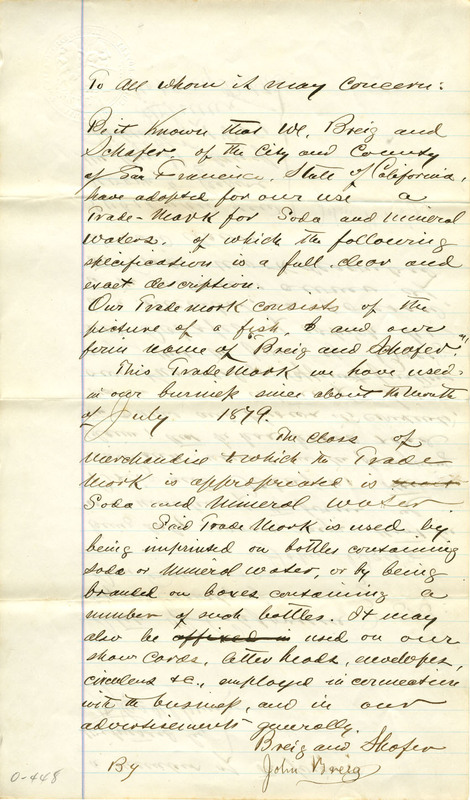 To all whom it may concern:
Be it Known that We, Breig and
Schafer, of the City and County
of San Francisco, State of California,
have adopted for our use a
Trade-Mark for Soda and mineral
waters, of which the following
specification is a full, clear and
exact description.
Our Trade mark consists of the
picture of a fish, & and our
firm name of "Breig and Shafer"
This Trade Mark we have used
in our business since about the Month
of July 1879.
The Class of
Merchandise to which the Trade
Mark is appropriated is
Soda and Mineral water
Said Trade Mark is used by
being imprinted on bottles containing
soda or Mineral water, or by being
branded on boxes containing a
number of such bottles. It may
also be affixed in used on our
show cards, letter heads, envelopes,
circulars &c., employed in connection
with the business, and in our
advertisements generally.
Breig and Shafer
By John Breig
0-448